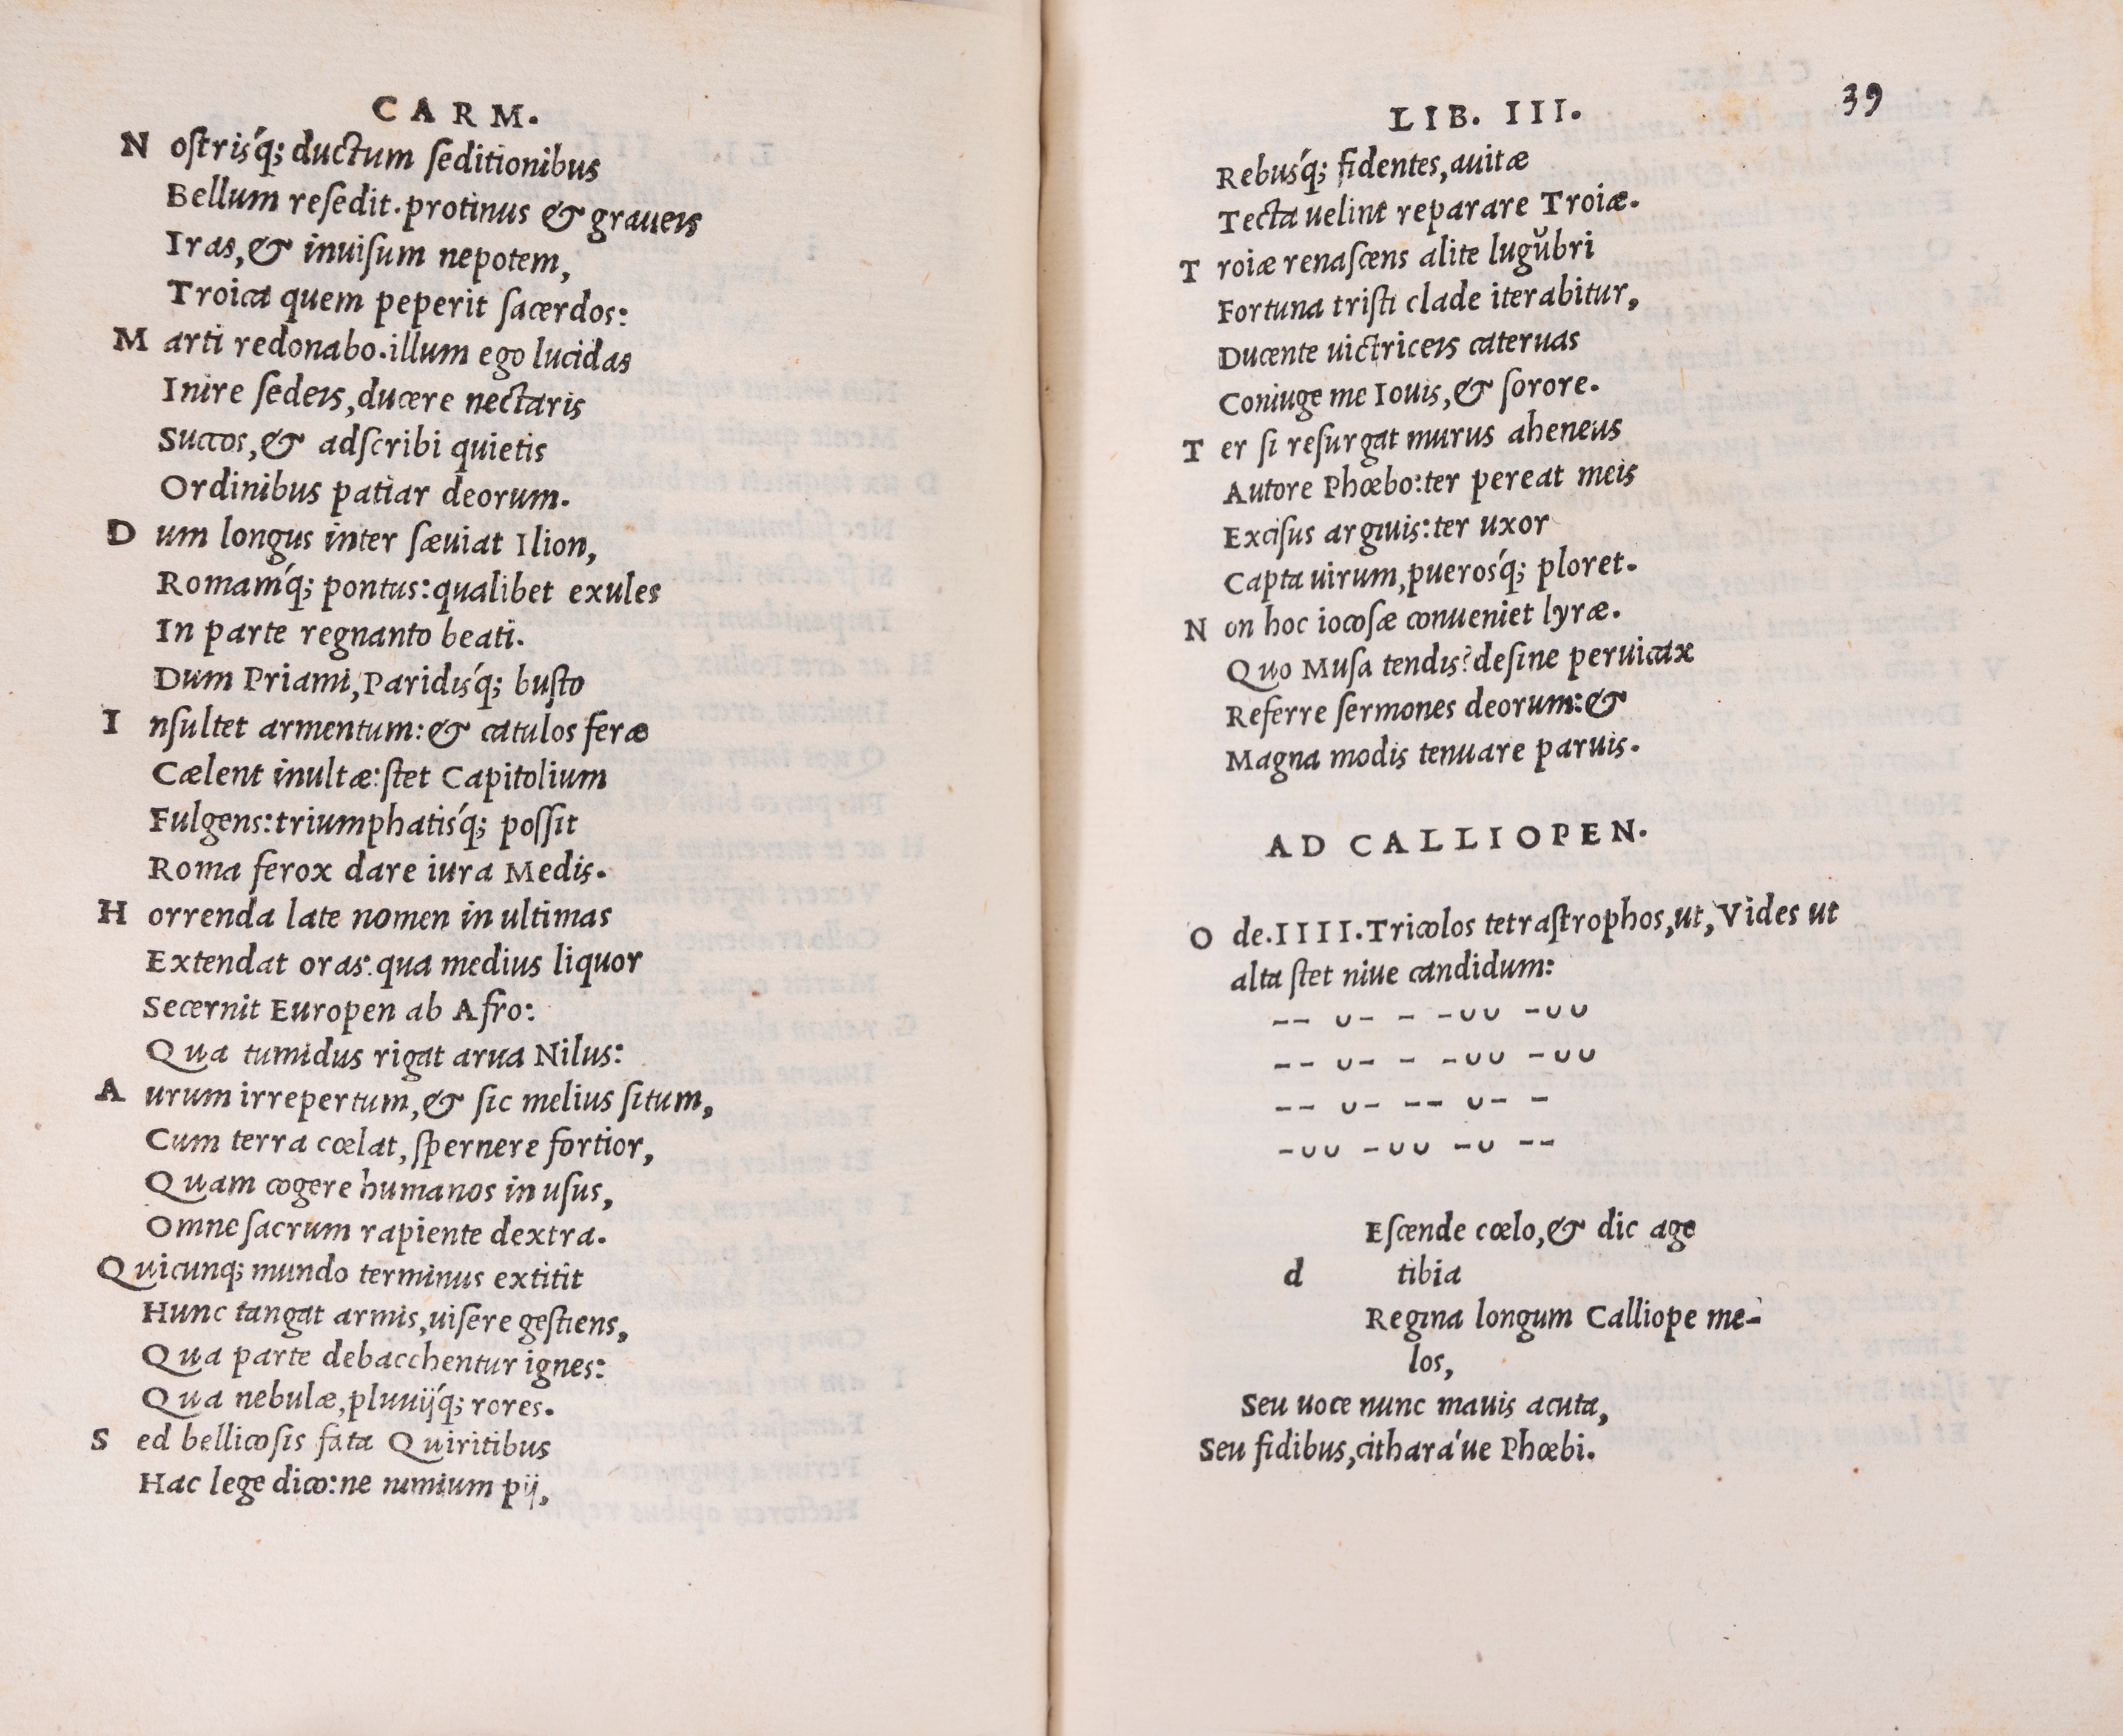 CARM.
N ostrisq́; ductum seditionibus
Bellum resedit. protinus & graueis
Iras, & inuisum nepotem,
Troica quem peperit sacerdos:
M arti redonabo. illum ego lucidas
Inire sedeis, ducere nectaris
Succos, & adscribi quietis
Ordinibus patiar deorum.
D um longus inter sæuiat Ilion,
Romamq́; pontus: qualibet exules
In parte regnanto beati.
Dum Priami, Paridisq́; busto
I nsultet armentum: & catulos feræ
Cælent inultæ: stet Capitolium
Fulgens: triumphatisq́; possit
Roma ferox dare iura Medis.
H orrenda late nomen in ultimas
Extendat oras. qua medius liquor
Secernit Europen ab Afro:
Qua tumidus rigat arua Nilus:
A urum irrepertum, & sic melius situm,
Cum terra cœlat, spernere fortior,
Quam cogere humanos in usus,
Omne sacrum rapiente dextra.
Q uicunq; mundo terminus extitit
Hunc tangat armis, uisere gestiens,
Qua parte debacchentur ignes:
Qua nebulæ, pluuijq́; rores.
S ed bellicosis fata Quiritibus
Hac lege dico: ne nimium pij,
LIB. III. 39
Rebusq́; fidentes, auitæ
Tecta uelint reparare Troiæ.
T roiæ renascens alite lugŭbri
Fortuna tristi clade iterabitur,
Ducente uictriceis cateruas
Coniuge me Iouis, & sorore.
T er si resurgat murus aheneus
Autore Phœbo: ter pereat meis
Excisus argiuis: ter uxor
Capta uirum, puerosq́; ploret.
N on hoc iocosæ conueniet lyræ.
Quo Musa tendis? desine peruicax
Referre sermones deorum: &
Magna modis tenuare paruis.
AD CALLIOPEN.
O de. IIII. Tricolos tetrastrophos, ut, Vides ut
alta stet niue candidum:
-- ∪- - -∪∪ -∪∪
-- ∪- - -∪∪ -∪∪
-- ∪- -- ∪- -
-∪∪ -∪∪ -∪ --
Escende cœlo, & dic age
d tibia
Regina longum Calliope me-
los,
Seu uoce nunc mauis acuta,
Seu fidibus, citharáue Phœbi.